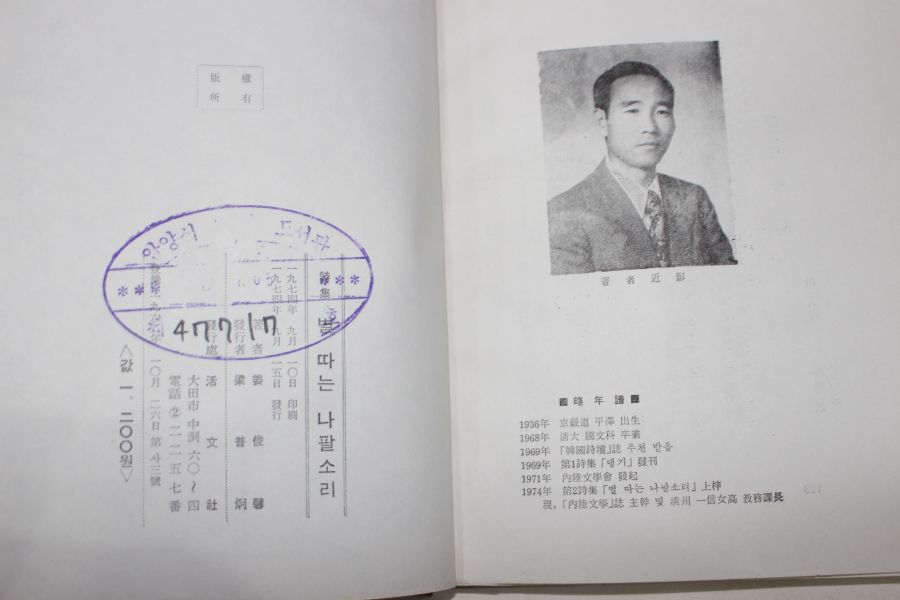 版權
所有
詩集 별 따는 나팔소리
一九七四年 九月 一〇日 印刷
一九七四年 九月 一五日 發行
著者 姜俊馨
發行者 梁普炯
發行處 活文社
大田市 中洞 六〇~四
電話 ② 二一一五七番
一〇月 二六日 第 사三號
<값 一, 二〇〇원>
안양시 도서관
*** ***
477 17
著者近影
略年譜
1936年 京畿道 平澤 出生
1968年 淸大 國文科 卒業
1969年 「韓國詩壇」誌 추천 받음
1969年 第1詩集「댕기」發刊
1971年 內陸文學會 發起
1974年 第2詩集「별 따는 나팔소리」上梓
現,「內陸文學」誌 主幹 및 淸州 一信女高 敎務課長